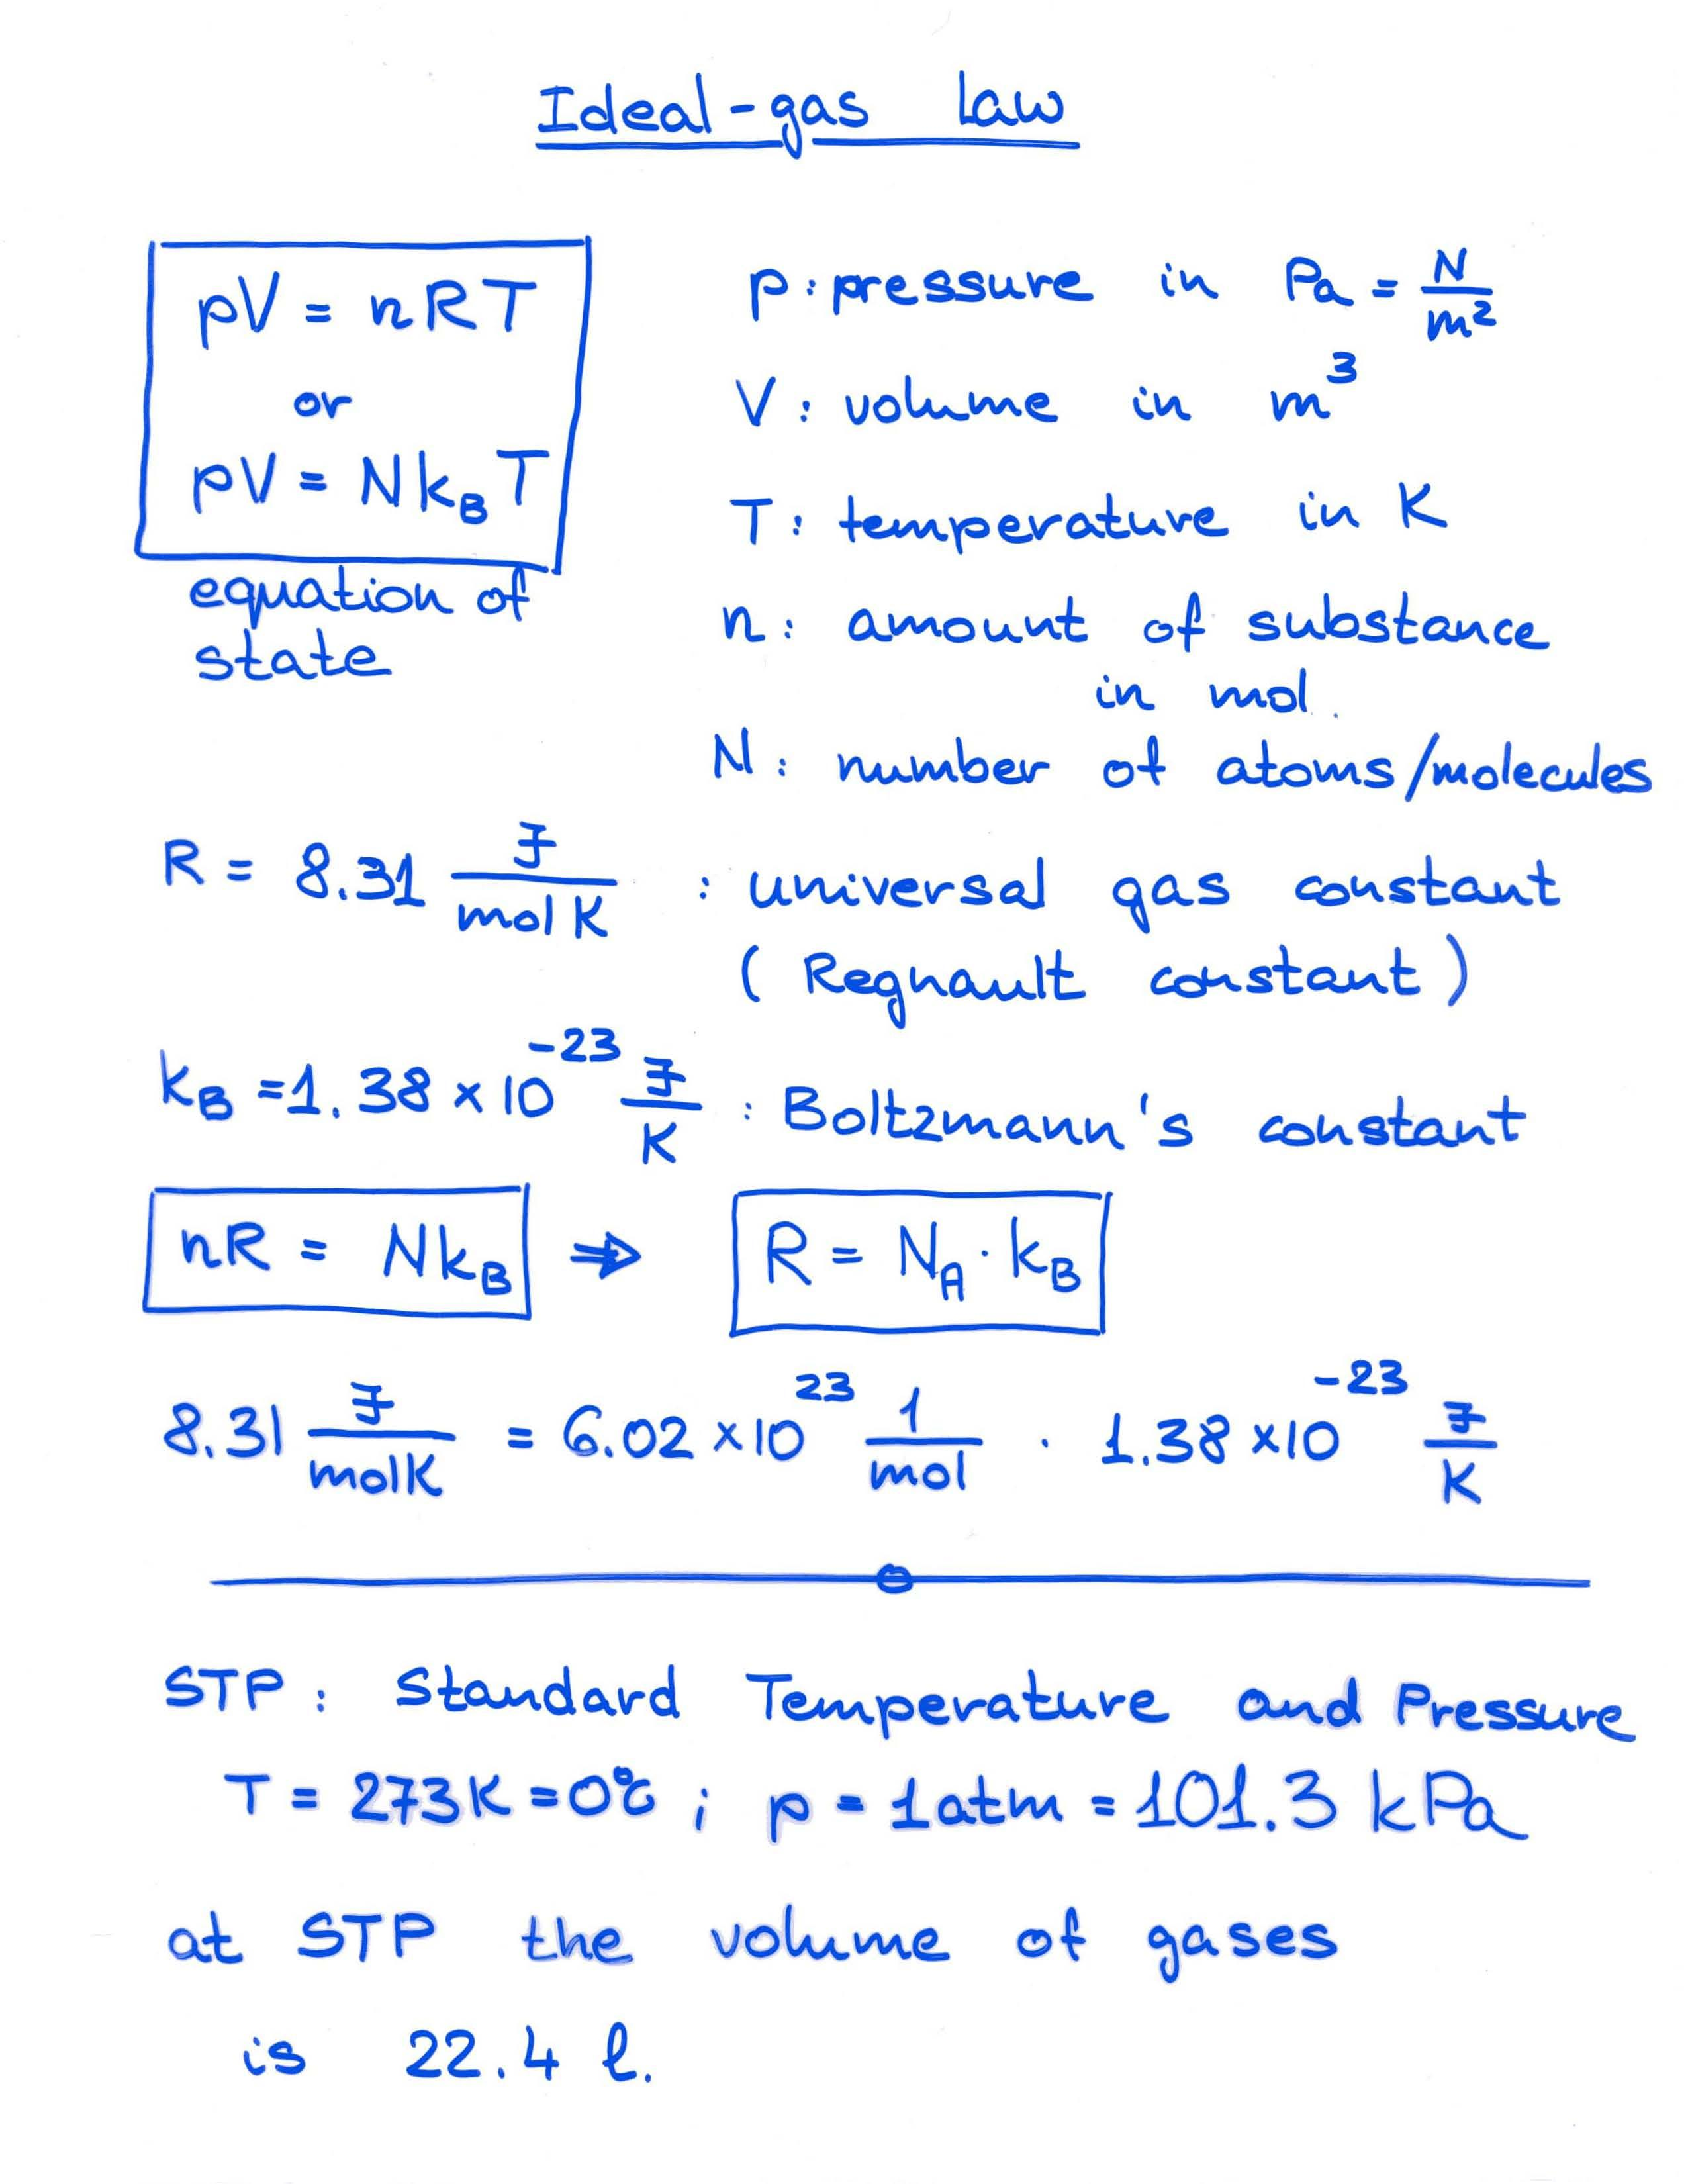 Ideal-gas Law
pV = nRT
or
pV = Nk_B T
equation of
state
p: pressure in Pa = N/m²
V: volume in m³
T: temperature in K
n: amount of substance
in mol.
N: number of atoms/molecules
R = 8.31 J/mol K : universal gas constant
(Regnault constant)
k_B = 1.38 × 10⁻²³ J/K : Boltzmann's constant
nR = Nk_B ⇒ R = N_A · k_B
8.31 J/molK = 6.02 × 10²³ 1/mol · 1.38 × 10⁻²³ J/K
STP: Standard Temperature and Pressure
T = 273K = 0°C ; p = 1atm = 101.3 kPa
at STP the volume of gases
is 22.4 ℓ.